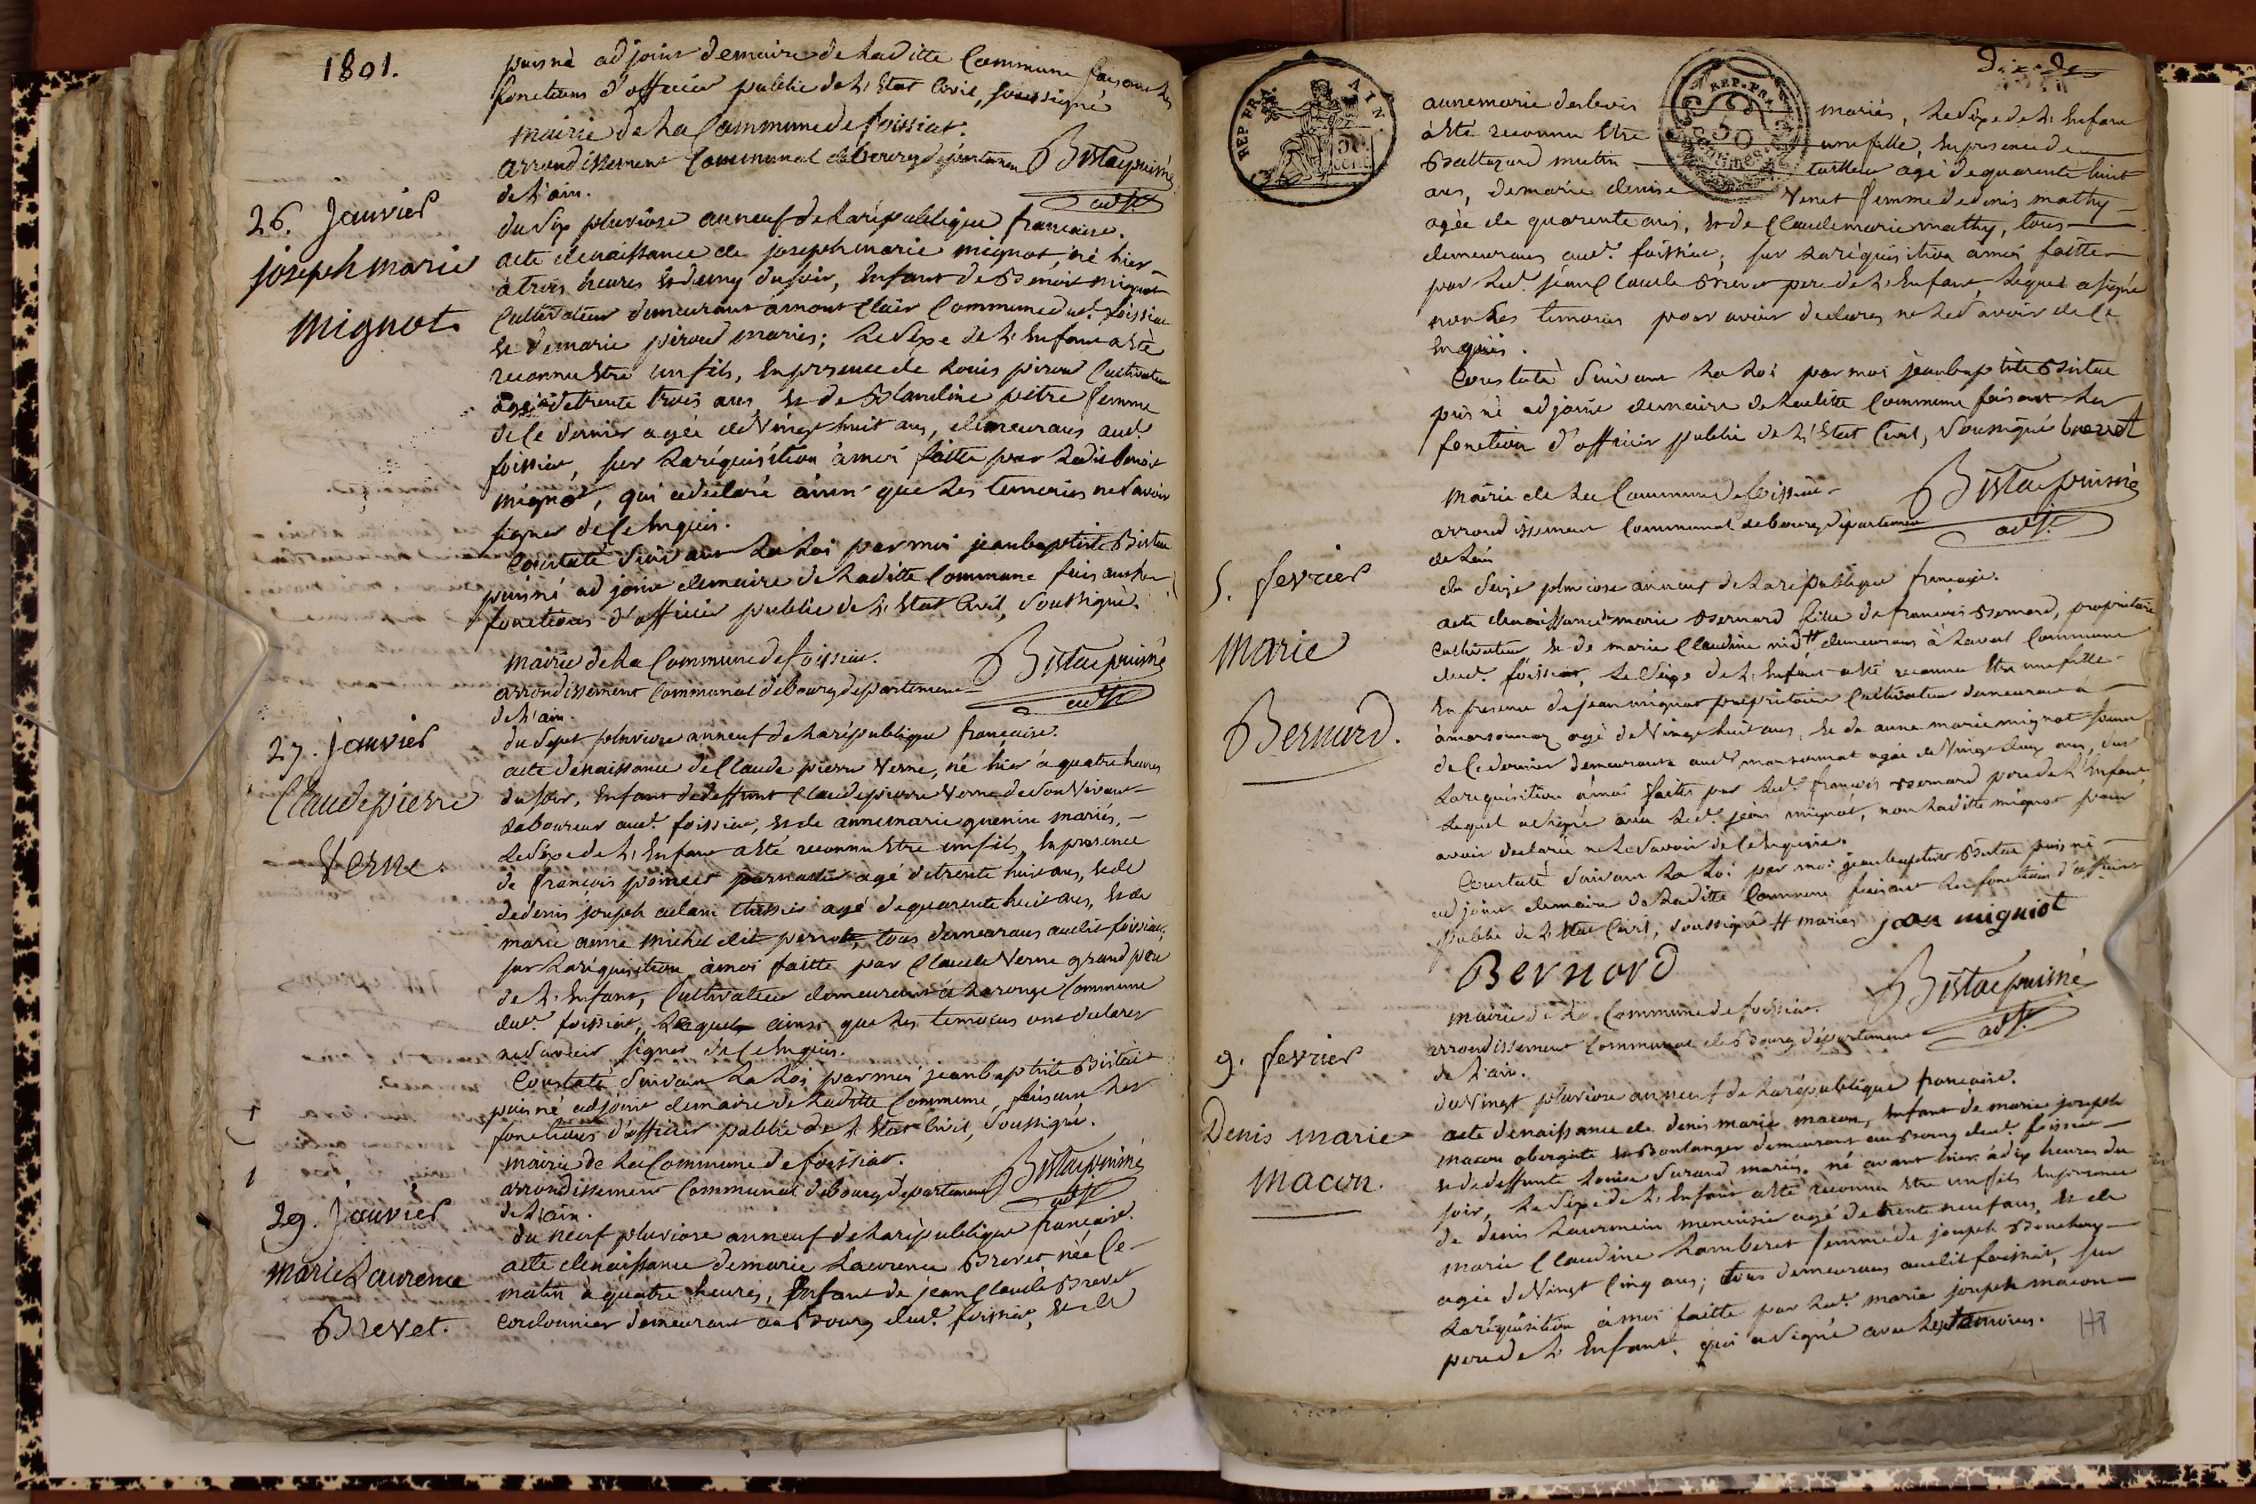 1801.
puisné adjoint demaire de Laditte Commune faisant les
fonctions d'officier public de L'Etat Civil, soussigné
mairie de La Commune de foissiat.
arrondissement Communal de bourg departement
Bistac puisné
adjt
de L'ain.
26. Janvier
joseph marie
Mignot
du six pluviose an neuf de La république francaise.
acte de naissance de joseph marie mignot, né hier
à trois heures et demy du soir, Enfant de Benoit mignot
Cultivateur demeurant à mont Clair Commune dud. foissiat
et de marie piroud mariés; Le sexe de L'Enfant a eté
reconnu Etre un fils, En presence de Louis piroud Cultivateur
agé de trente trois ans et de Claudine petre femme
de Ce dernier agée de Vingt huit ans, demeurans aud.
foissiat, sur La réquisition à moi faitte par Ledit benoit
mignot, qui a déclaré ainsi que Les temoins ne Savoir
signer de Ce Enquis.
Constaté Suivant La Loi par moi jean baptiste Bistac
puisné adjoint demaire de Laditte Commune faisant les
fonctions d'officier public de L'Etat Civil, Soussigné.
mairie de La Commune de foissiat.
Bistac puisné
adjt
arrondissement Communal de bourg departement
de L'ain.
27. Janvier
Claude pierre
Verne.
du Sept pluviose an neuf de La république francaise.
acte de naissance de Claude pierre Verne, né hier à quatre heures
du soir, Enfant de deffunt Claude pierre Verne de son Vivant
Laboureur aud. foissiat, et de anne marie guerin mariés,
Le sexe de L'Enfant a eté reconnu Etre un fils, En presence
de françois agé de trente huit ans, et de
denis joseph adam agé de quarente huit ans, et de
marie anne michel dit perrot, tous demeurans audit foissiat,
sur La réquisition à moi faitte par Claude Verne grand pere
de L'Enfant, Cultivateur demeurant à Commune
dud. foissiat, Lequel ainsi que Les temoins ont declarer
ne Savoir signer de Ce Enquis.
Constaté Suivant La Loi par moi jean baptiste Bistac
puisné adjoint demaire de Laditte Commune, faisant les
fonctions d'officier public de L'Etat Civil, Soussigné.
mairie de La Commune de foissiat.
Bistac puisné
adjt
arrondissement Communal de bourg departement
de L'ain.
29. Janvier
Marie Laurence
Brevet.
du neuf pluviose an neuf de La république francaise.
acte de naissance de marie Laurence Brevet née Ce
matin à quatre heures, Enfant de jean Claude Brevet
Cordonnier demeurant au Bourg dud. foissiat, et de
REP. FRA. AIN
50 cent
REP. FRA.
50
centimes
anne marie mariés, Le sexe de L'Enfant
à eté reconnu Etre une fille, En presence de
Baltazard mutin tailleur agé de quarente huit
ans, de marie denise Venet femme de denis mathy
agée de quarente ans, et de Claude marie mathy, tous
demeurans aud. foissiat; sur La réquisition à moi faitte
par Led. jean Claude Brevet pere de L'Enfant, Lequel a signé
non Les temoins pour avoir declarer ne Le Savoir de Ce
Enquis.
Constaté Suivant La Loi par moi jean baptiste Bistac
puisné adjoint demaire de Laditte Commune faisant les
fonction d'officier public de L'Etat Civil, Soussigné brevet
Bistac puisné
adjt
mairie de La Commune de foissiat
arrondissement Communal de bourg departement
de L'ain
5. fevrier
Marie
Bernard.
du Seize pluviose an neuf de La république francaise.
acte de naissance de marie Bernard fille de francois Bernard, propriétaire
Cultivateur et de marie Claudine # demeurans à Commune
dud. foissiat, Le Sexe de L'Enfant a eté reconnu Etre une fille
En presence de jean mignot propriétaire Cultivateur demeurant à
à marsonnaz agé de Vingt huit ans, et de anne marie mignot femme
de Ce dernier demeurante aud. marsonnat agée de Vingt deux ans, Sur
La réquisition à moi faitte par Led. francois Bernard pere de L'Enfant
Lequel a signé avec Led. jean mignot, non Laditte mignot pour
avoir declarée ne Le Savoir de Ce Enquise.
Constaté Suivant La Loi par moi jean baptiste Bistac puisné
adjoint demaire de Laditte Commune faisant Les fonctions d'officier
public de L'Etat Civil, Soussigné # mariés jan migniot
Bernord
Bistac puisné
adjt
mairie de La Commune de foissiat.
arrondissement Communal de Bourg departement
de L'ain.
9. fevrier
Denis marie
Macon.
du Vingt pluviose an neuf de La république francaise.
acte de naissance de denis marie macon, Enfant de marie joseph
macon obergiste et Boulanger demeurant au Bourg dud. foissiat
et de deffunte Louise Durand mariés, né avant hier à dix heures du
soir, Le sexe de L'Enfant a eté reconnu Etre un fils En presence
de denis Laurencin menuisier agé de trente neuf ans, et de
marie Claudine Lamberet femme de joseph Bouchary
agée de Vingt Cinq ans; tous demeurans audit foissiat, sur
La réquisition à moi faitte par Led. marie joseph macon
pere de L'Enfant, qui a signé avec Les temoins.